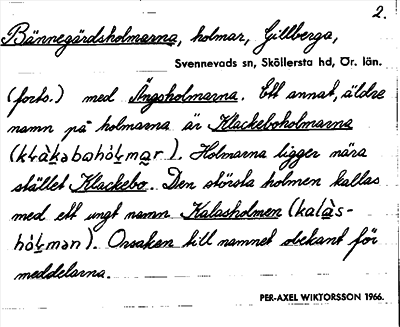 2.
Bännegärdsholmarna, holmar, Gillberga,
Svennevads sn, Sköllersta hd, Ör. län.
(forts.) med Ängsholmarna. Ett annat, äldre
namn på holmarna är Klackeboholmarna
Holmarna ligger nära
stället Klackebo. Den största holmen kallas
med ett ungt namn Kalasholmen (kalàs-
hòḻmən). Orsaken till namnet obekant för
meddelarna.
PER-AXEL WIKTORSSON 1966.